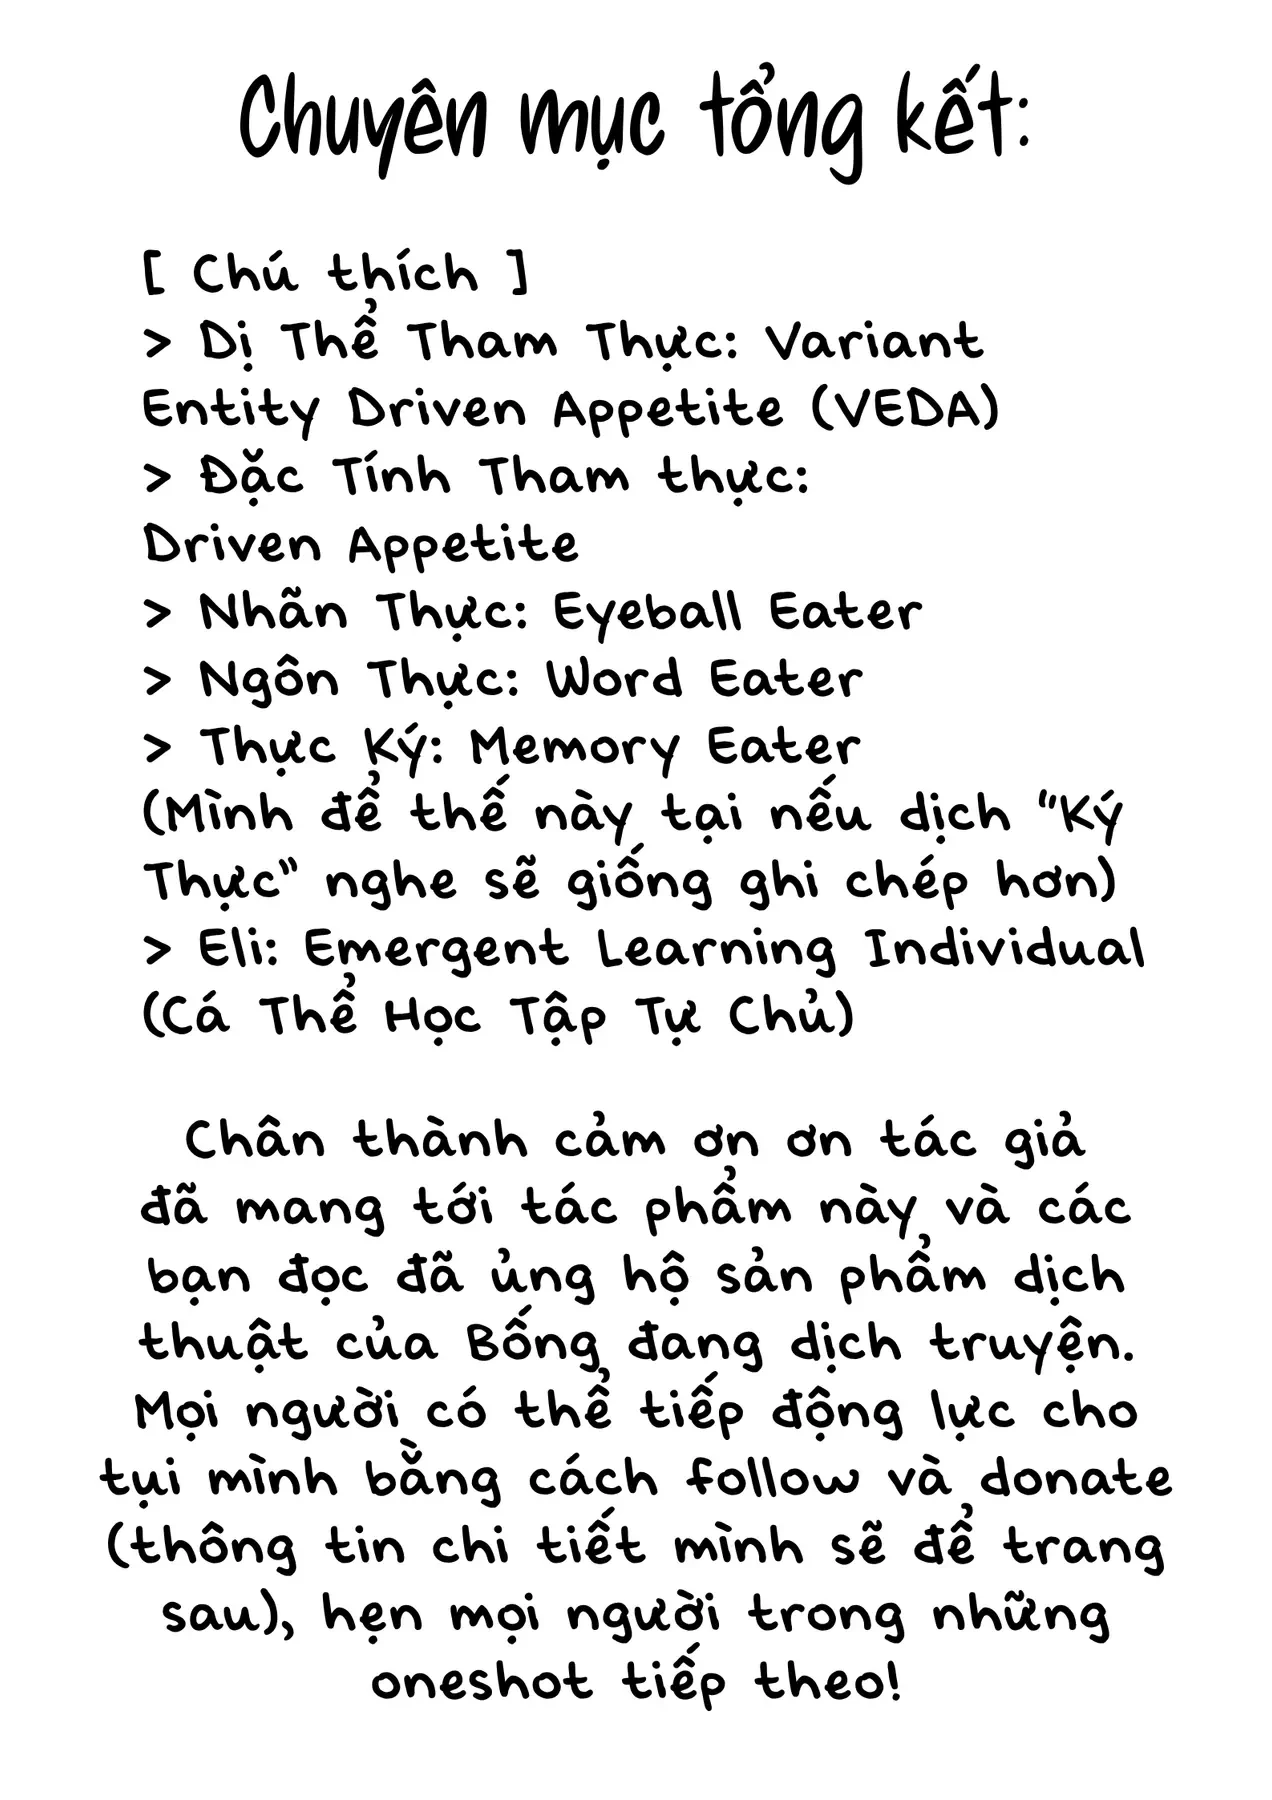 Chuyên mục tổng kết:
[ Chú thích ]
> Dị Thể Tham Thực: Variant
Entity Driven Appetite (VEDA)
> Đặc Tính Tham thực:
Driven Appetite
> Nhãn Thực: Eyeball Eater
> Ngôn Thực: Word Eater
> Thực Ký: Memory Eater
(Mình để thế này tại nếu dịch "Ký
Thực" nghe sẽ giống ghi chép hơn)
> Eli: Emergent Learning Individual
(Cá Thể Học Tập Tự Chủ)
Chân thành cảm ơn ơn tác giả
đã mang tới tác phẩm này và các
bạn đọc đã ủng hộ sản phẩm dịch
thuật của Bống đang dịch truyện.
Mọi người có thể tiếp động lực cho
tụi mình bằng cách follow và donate
(thông tin chi tiết mình sẽ để trang
sau), hẹn mọi người trong những
oneshot tiếp theo!